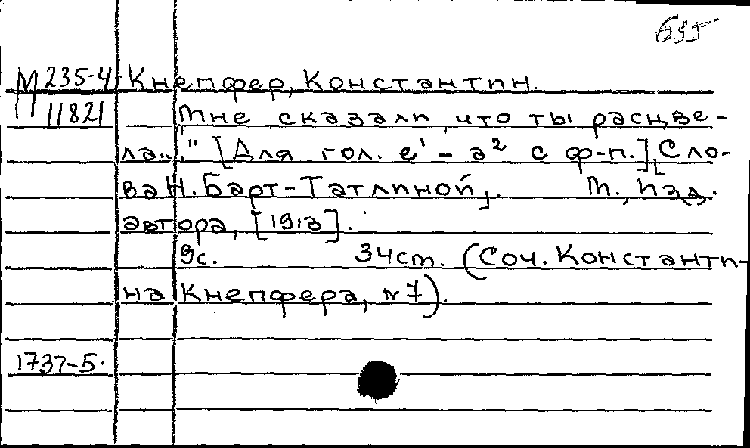 М 235-4 Кнепфер, Константин.
11821 "Мне сказали, что ты расцве-
ла..." [Для гол. e¹ - a² с ф-п.] [Сло-
ва Н. Барт-Татлиной]. М., Изд.
автора, [1913].
9с. 34см. (Соч. Константи-
на Кнепфера, №7).
1737-5.